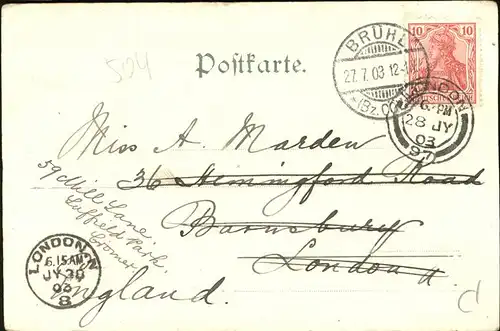 Postkarte.
504
BRÜHL
27.7.03 12-1
*(Bz. Cö
10 10
LONDON
6. PM
28 JY
03
97
Miss A. Marden
36 Hemingford Road
Barnsbury
London N.
England.
59 Mill Lane,
Suffield Park
Cromer
LONDON.N
6.15AM
JY 30
03
8